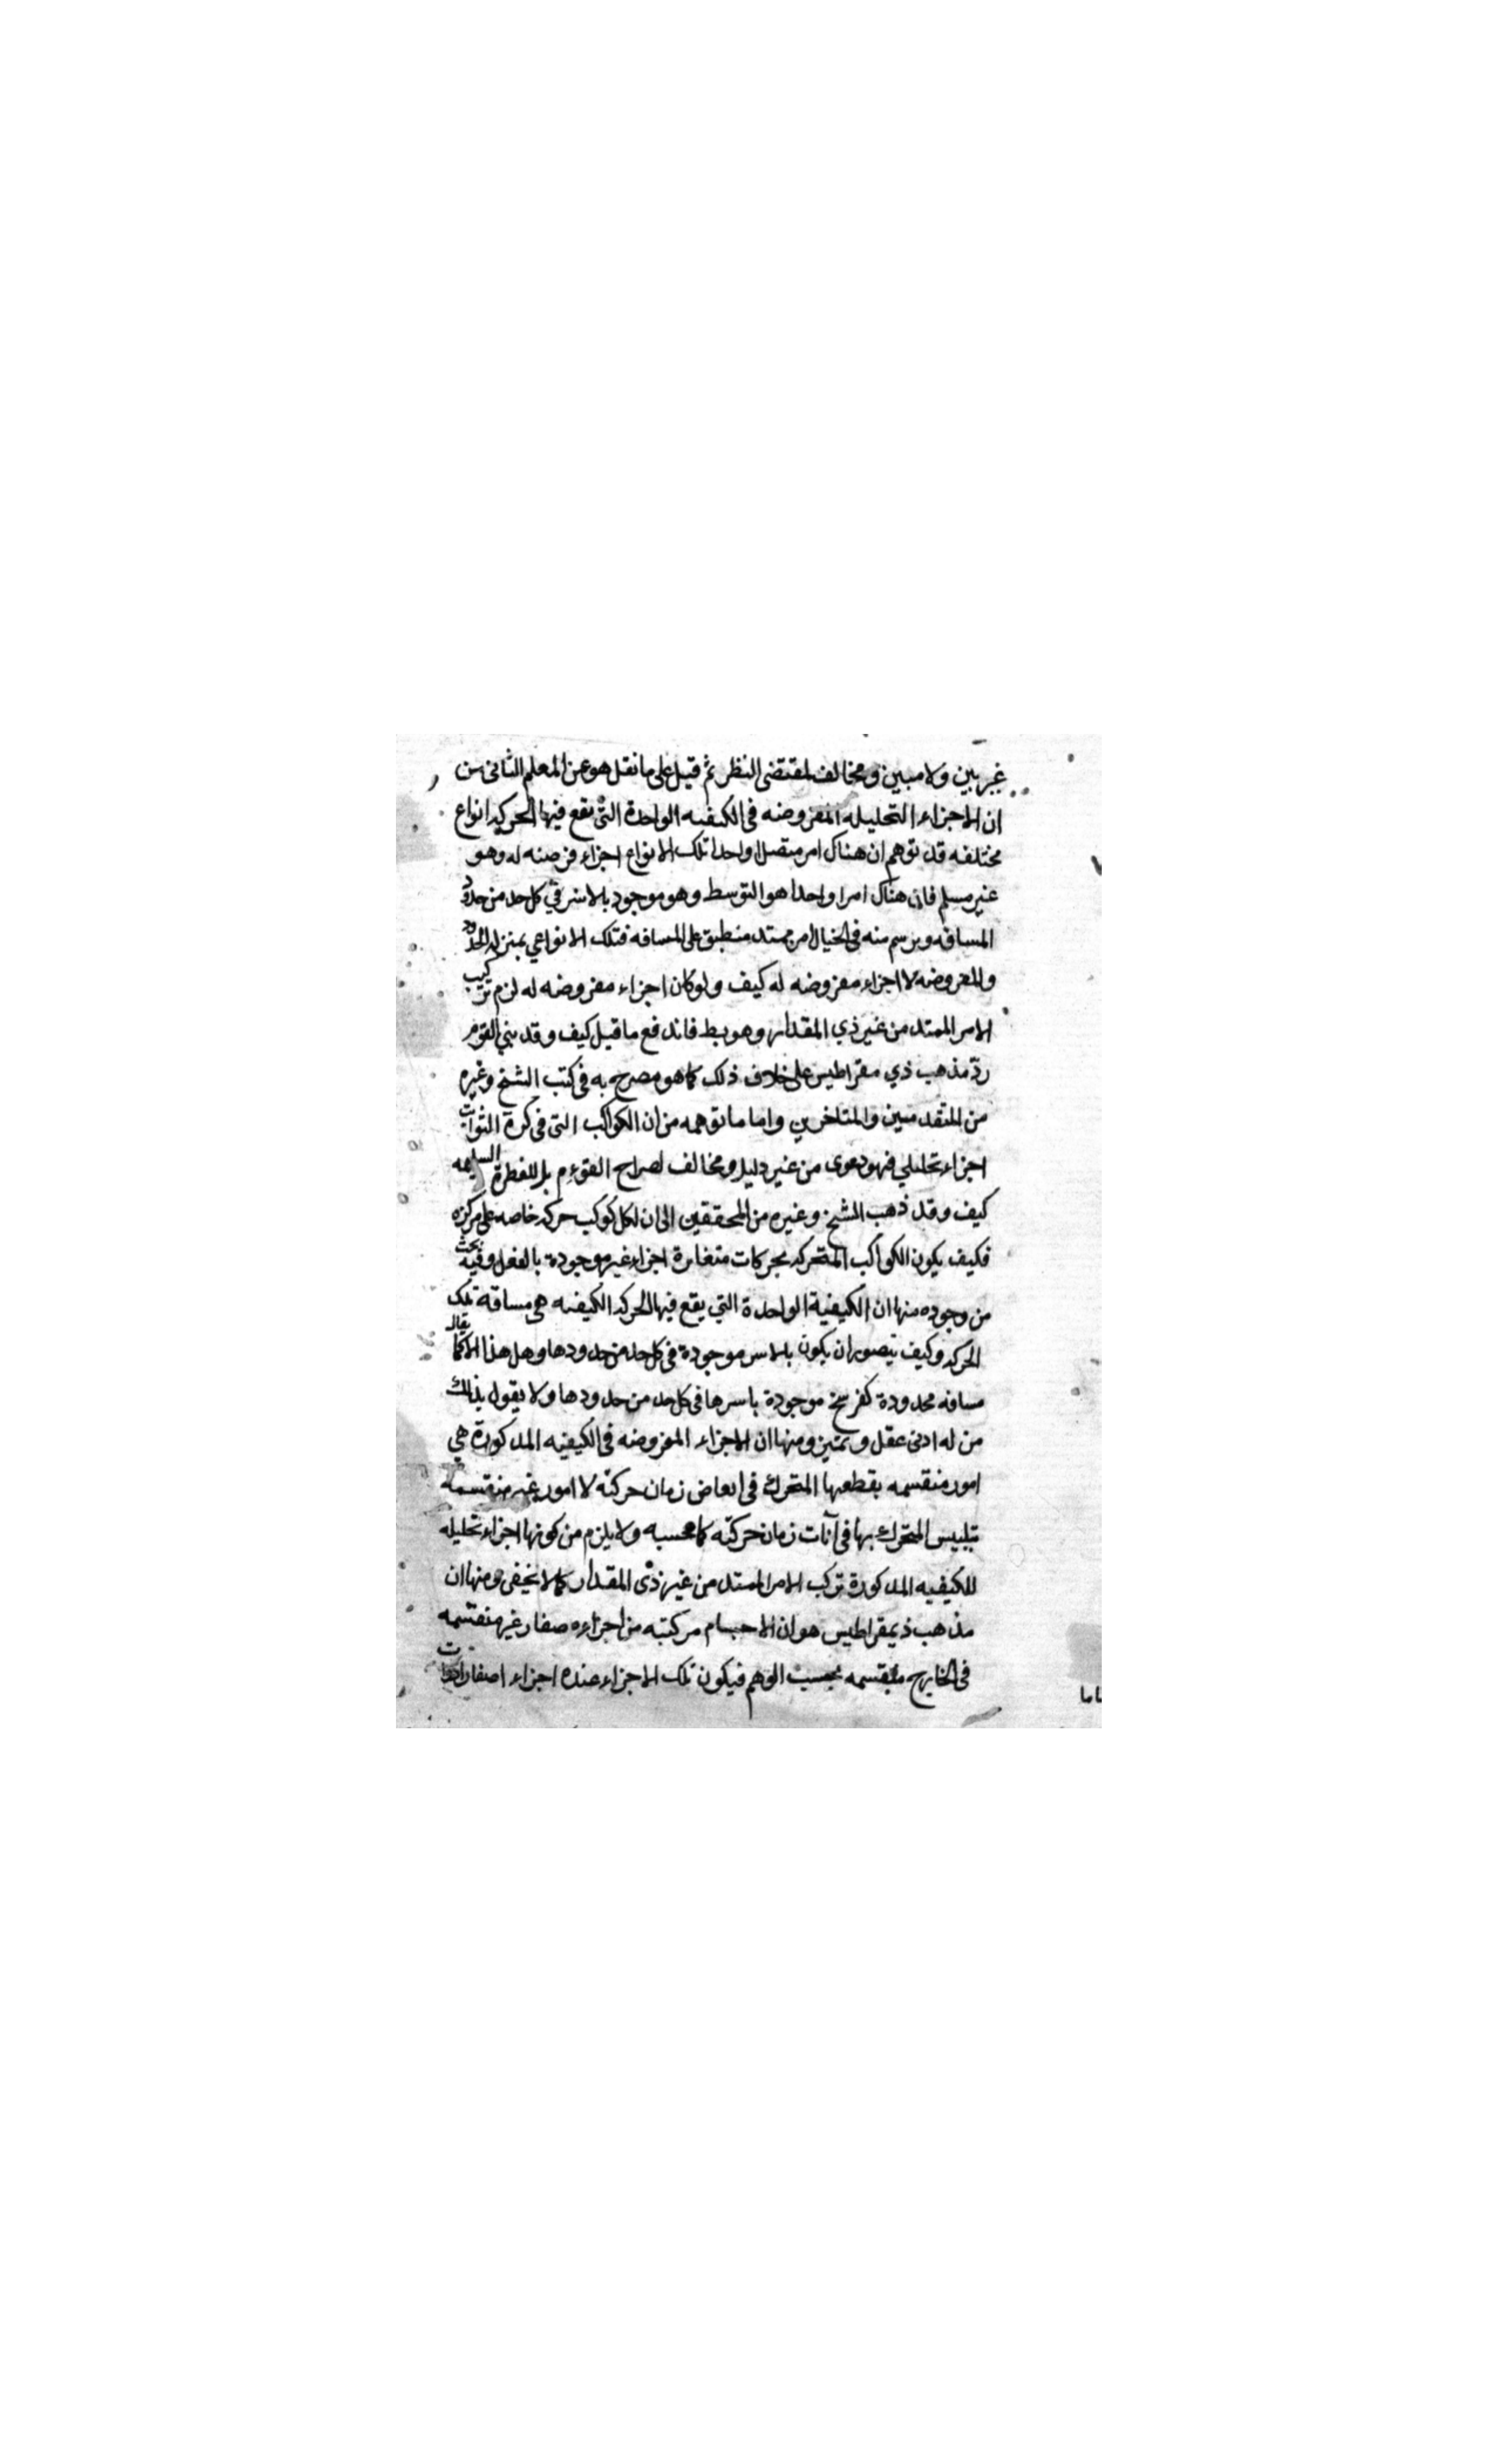 غير بين ولا مبين ومخالف لمقتضى النظر ثم قيل على ما نقل هو عن المعلم الثانى من
ان الاجزاء التحليله المفروضه فى الكيفيه الواحدة التى تقع فيها الحركه انواع
مختلفه قد توهم ان هناك امر متصل واحدا تلك الانواع اجزاء فرضيه له وهو
غير مسلم فان هناك امرا واحدا هو التوسط وهو موجود بالاسر في كل حد من حدود
المسافه ويرسم منه فى الخيال امر ممتد منطبق على المسافه فتلك الانواعي بمنزله الحدود
والمفروضه لا اجزاء مفروضه له كيف ولو كان اجزاء مفروضه له لزم تركيب
الامر الممتد من غير ذي المقدار وهو بط فاندفع ما قيل كيف وقد بني القوم
ردّ مذهب ذي مقراطيس على خلاف ذلك كما هو مصرح به فى كتب الشيخ وغيره
من المتقدمين والمتاخرين واما ما توهمه من ان الكواكب التى فى كرة الثوابت
اجزاء تحليلي فهو دعوى من غير دليل ومخالف لصراح القوم بل للفطرة السليمه
كيف وقد ذهب الشيخ وغيره من المحققين الى ان لكل كوكب حركه خاصه على مركزه
فكيف يكون الكواكب المتحركه بحركات متغايرة اجزاء غير موجودة بالفعل وفيه بحث
من وجوده منها ان الكيفية الواحدة التي يقع فيها الحركه الكيفيه هى مسافه تلك
الحركه وكيف يتصور ان يكون بالاسر موجودة فى كل حد من حدودها وهل هذا الا كما يقال
مسافه محدودة كفرسخ موجودة باسرها فى كل حد من حدودها ولا يقول بذلك
من له ادنى عقل وتميز ومنها ان الاجزاء المفروضه فى الكيفيه المذكورة هي
امور منقسمه يقطعها المتحرك فى ابعاض زمان حركته لا امور غير منقسمه
تلبيس المتحرك بها فى آنات زمان حركته كما حسبه ولا يلزم من كونها اجزاء تحليله
للكيفيه المذكورة تركب الامر الممتد من غير ذى المقدار كما لا يخفى ومنها ان
مذهب ذيمقراطيس هو ان الاجسام مركبه من اجزاء صغار غير منقسمه
فى الخارج منقسمه بحسب الوهم فيكون تلك الاجزاء عنده اجزاء اصغار